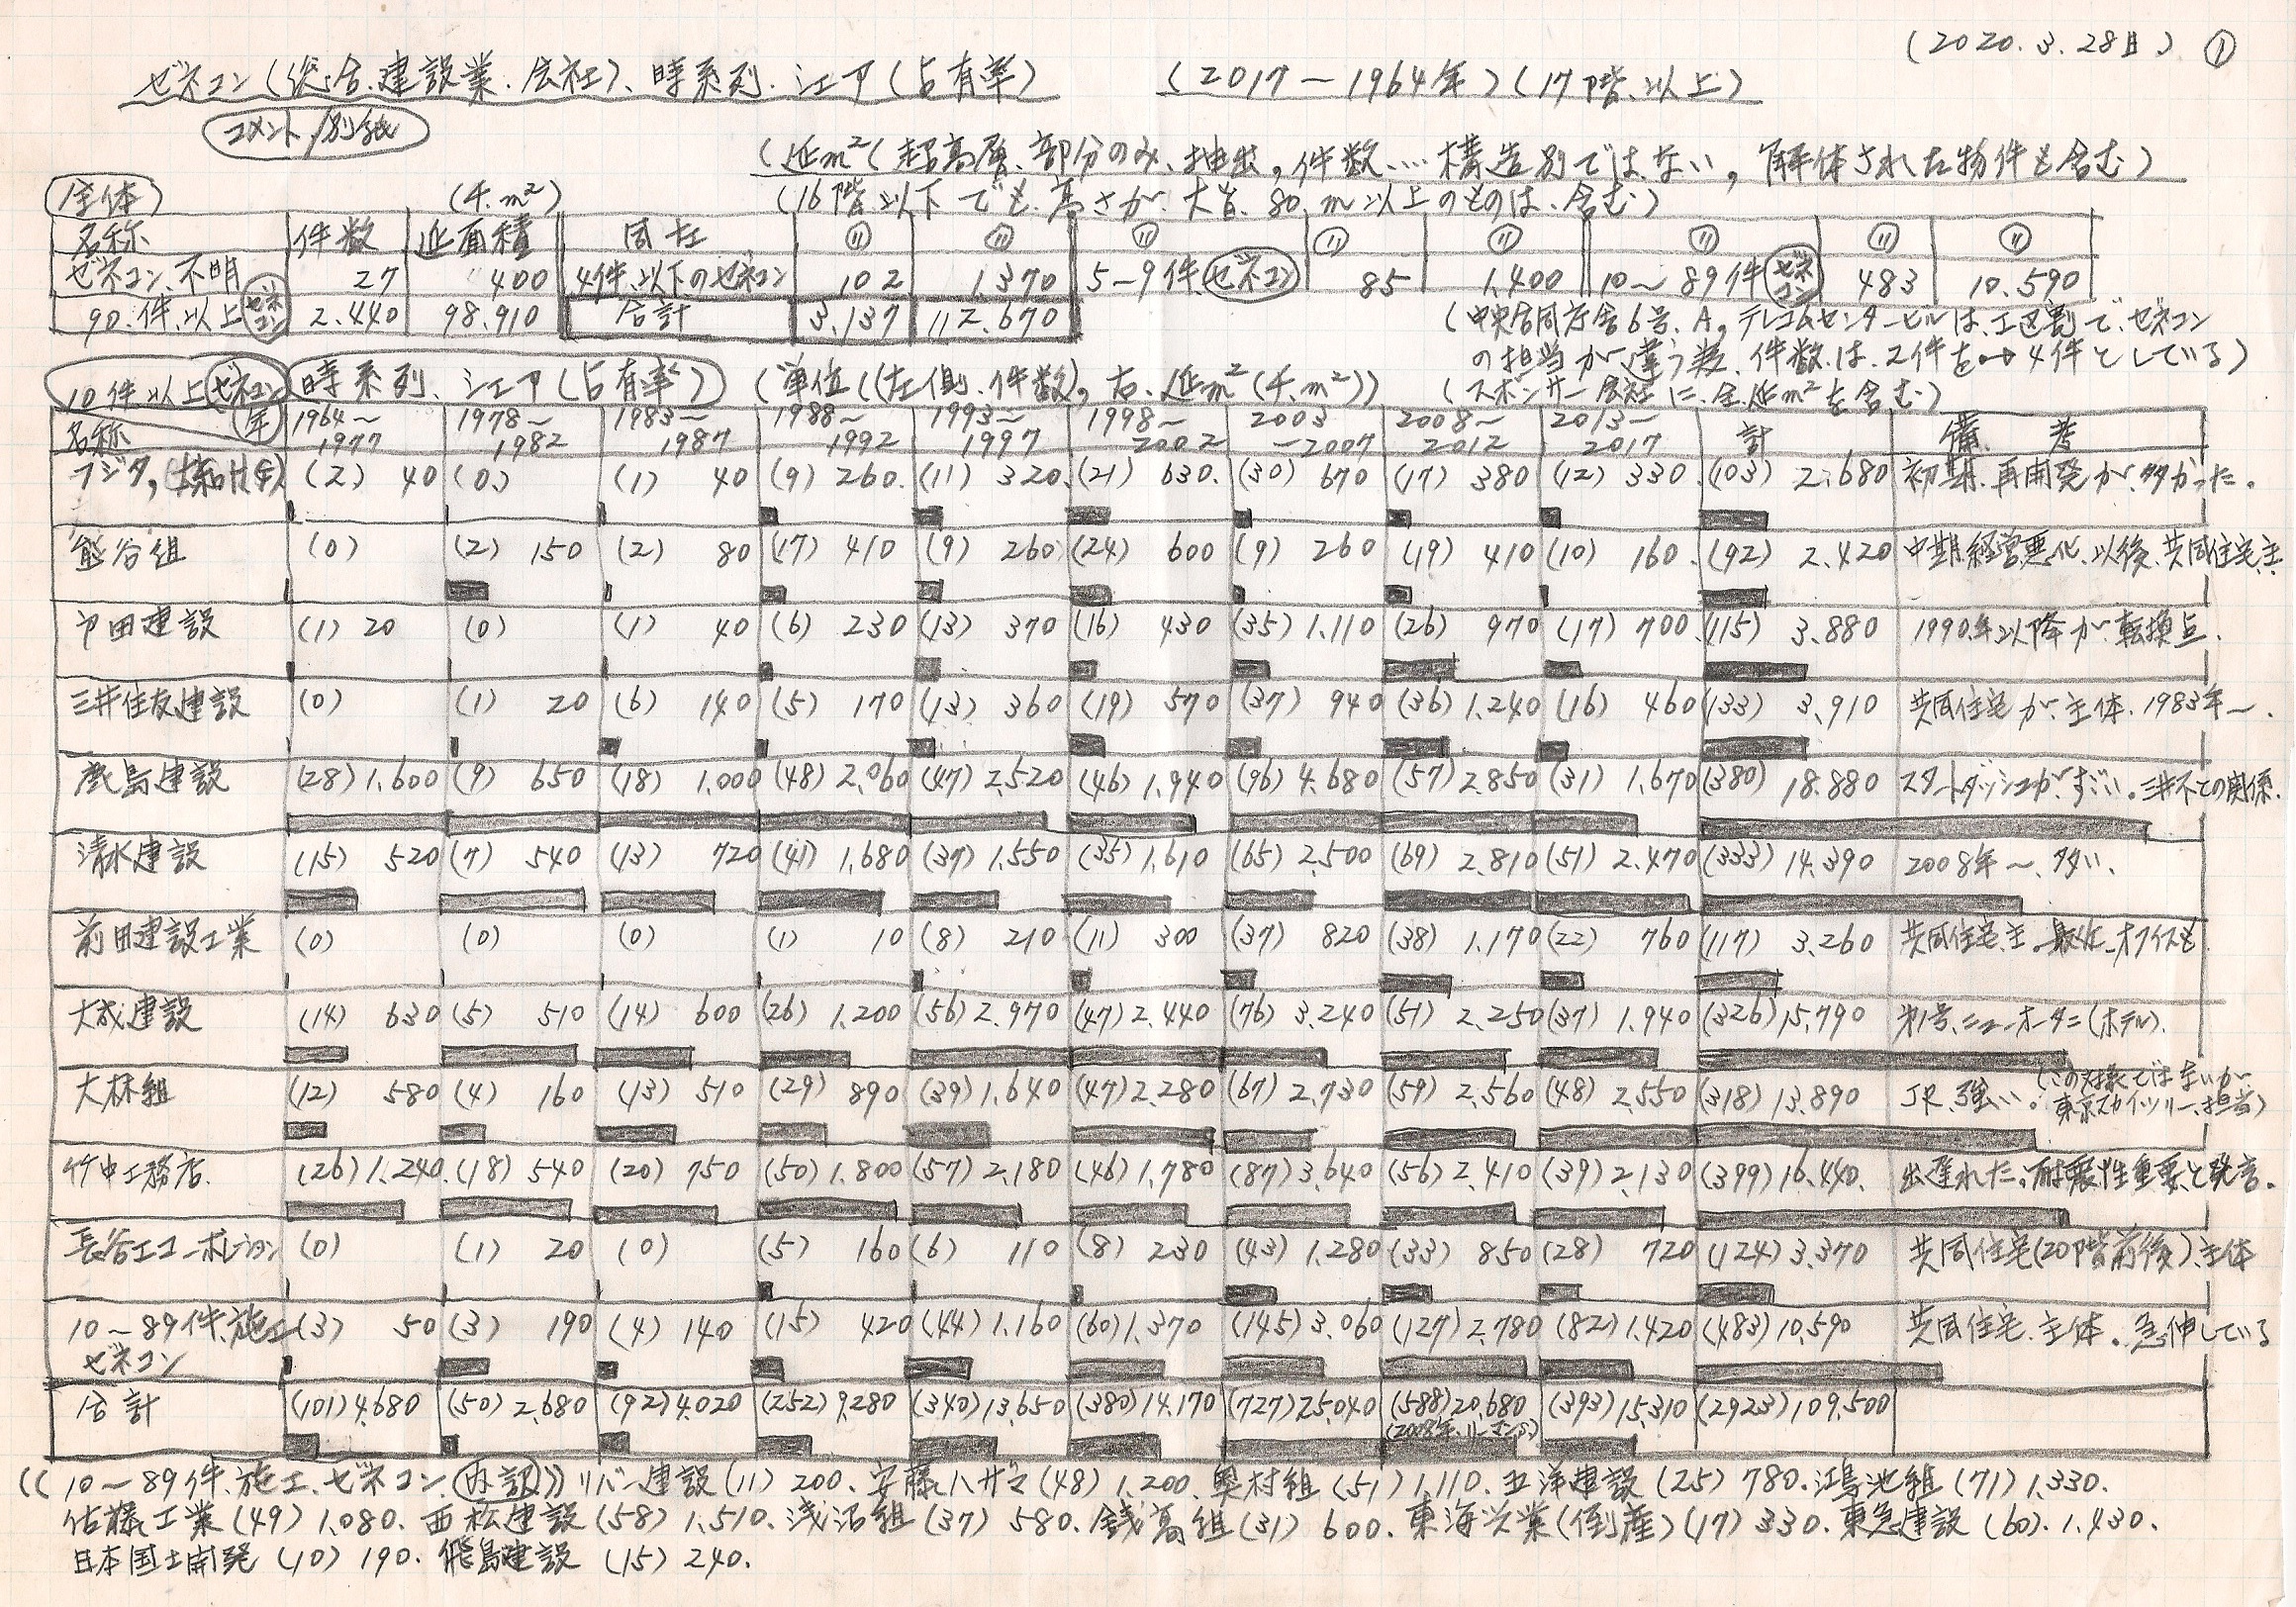 (2020.3.28日) ①
ゼネコン(総合建設業会社)、時系列、シェア(占有率) (2017〜1964年)(17階以上)
コメント/別紙
(延m²(超高層部分のみ抽出，件数…構造別ではない，解体された物件も含む)
(16階以下でも高さが大旨80m以上のものは含む)
全体 (千m²)
名称 件数 延面積 同左 〃 〃 〃 〃 〃 〃 〃 〃
ゼネコン不明 27 400 4件以下のゼネコン 102 1,370 5-9件ゼネコン 85 1,400 10〜89件ゼネコン 483 10,590
90件以上ゼネコン 2,440 98,910 合計 3,137 112,670
(中央合同庁舎6号A，テレコムセンタービルは、工区割で、ゼネコン
の担当が違う為、件数は、2件を→4件としている)
10件以上ゼネコン 時系列、シェア(占有率) (単位((左側、件数)，右、延m²(千m²)) (スポンサー会社に全延m²を含む)
名称 年 1964〜1977 1978〜1982 1983〜1987 1988〜1992 1993〜1997 1998-2002 2003-2007 2008-2012 2013-2017 計 備考
フジタ， (2) 40 (0) (1) 40 (9) 260 (11) 320 (21) 630 (30) 670 (17) 380 (12) 330 (103) 2,680 初期、再開発が多かった。
熊谷組 (0) (2) 150 (2) 80 (17) 410 (9) 260 (24) 600 (9) 260 (19) 410 (10) 160 (92) 2,420 中期経営悪化、以後、共同住宅主
戸田建設 (1) 20 (0) (1) 40 (6) 230 (13) 370 (16) 430 (35) 1,110 (26) 970 (17) 700 (115) 3,880 1990年以降が転換点、
三井住友建設 (0) (1) 20 (6) 140 (5) 170 (13) 360 (19) 570 (37) 940 (36) 1,240 (16) 460 (133) 3,910 共同住宅が主体、1983年〜、
鹿島建設 (28) 1,600 (9) 650 (18) 1,000 (48) 2,060 (47) 2,520 (46) 1,940 (96) 4,680 (57) 2,850 (31) 1,670 (380) 18,880 スタートダッシュがすごい。三井不との関係、
清水建設 (15) 520 (7) 540 (13) 720 (41) 1,680 (37) 1,550 (35) 1,610 (65) 2,500 (69) 2,810 (51) 2,470 (333) 14,390 2008年〜、多い、
前田建設工業 (0) (0) (0) (1) 10 (8) 210 (11) 300 (37) 820 (38) 1,170 (22) 760 (117) 3,260 共同住宅主。最近、オフィスも
大成建設 (14) 630 (5) 510 (14) 600 (26) 1,200 (56) 2,970 (47) 2,440 (76) 3,240 (51) 2,250 (37) 1,940 (326) 15,790 第1号、ニューオータニ(ホテル)、
大林組 (12) 580 (4) 160 (13) 510 (29) 890 (39) 1,640 (47) 2,280 (67) 2,730 (59) 2,560 (48) 2,550 (318) 13,890 JR、強い。(この対象ではないが東京スカイツリー、担当)
竹中工務店 (26) 1,240 (18) 540 (20) 750 (50) 1,800 (57) 2,180 (46) 1,780 (87) 3,640 (56) 2,410 (39) 2,130 (399) 16,440 出遅れた。耐震性重要と発言。
長谷工コーポレーション (0) (1) 20 (0) (5) 160 (6) 110 (8) 230 (43) 1,280 (33) 850 (28) 720 (124) 3,370 共同住宅(20階前後)主体
10〜89件施工ゼネコン (3) 50 (3) 190 (4) 140 (15) 420 (44) 1,160 (60) 1,370 (145) 3,060 (127) 2,780 (82) 1,420 (483) 10,590 共同住宅、主体。急伸している
合計 (101) 4,680 (50) 2,680 (92) 4,020 (252) 9,280 (340) 13,650 (380) 14,170 (727) 25,040 (588) 20,680 (2008年、リーマンS) (393) 15,310 (2923) 109,500
((10〜89件、施工、ゼネコン、内訳)) リバー建設(11) 200、安藤ハザマ(48) 1,200、奥村組(51) 1,110、五洋建設(25) 780、鴻池組(71) 1,330、
佐藤工業(49) 1,080、西松建設(58) 1,510、浅沼組(37) 580、銭高組(31) 600、東海興業(倒産)(17) 330、東急建設(60)、1,430、
日本国土開発(10) 190、飛島建設(15) 240、